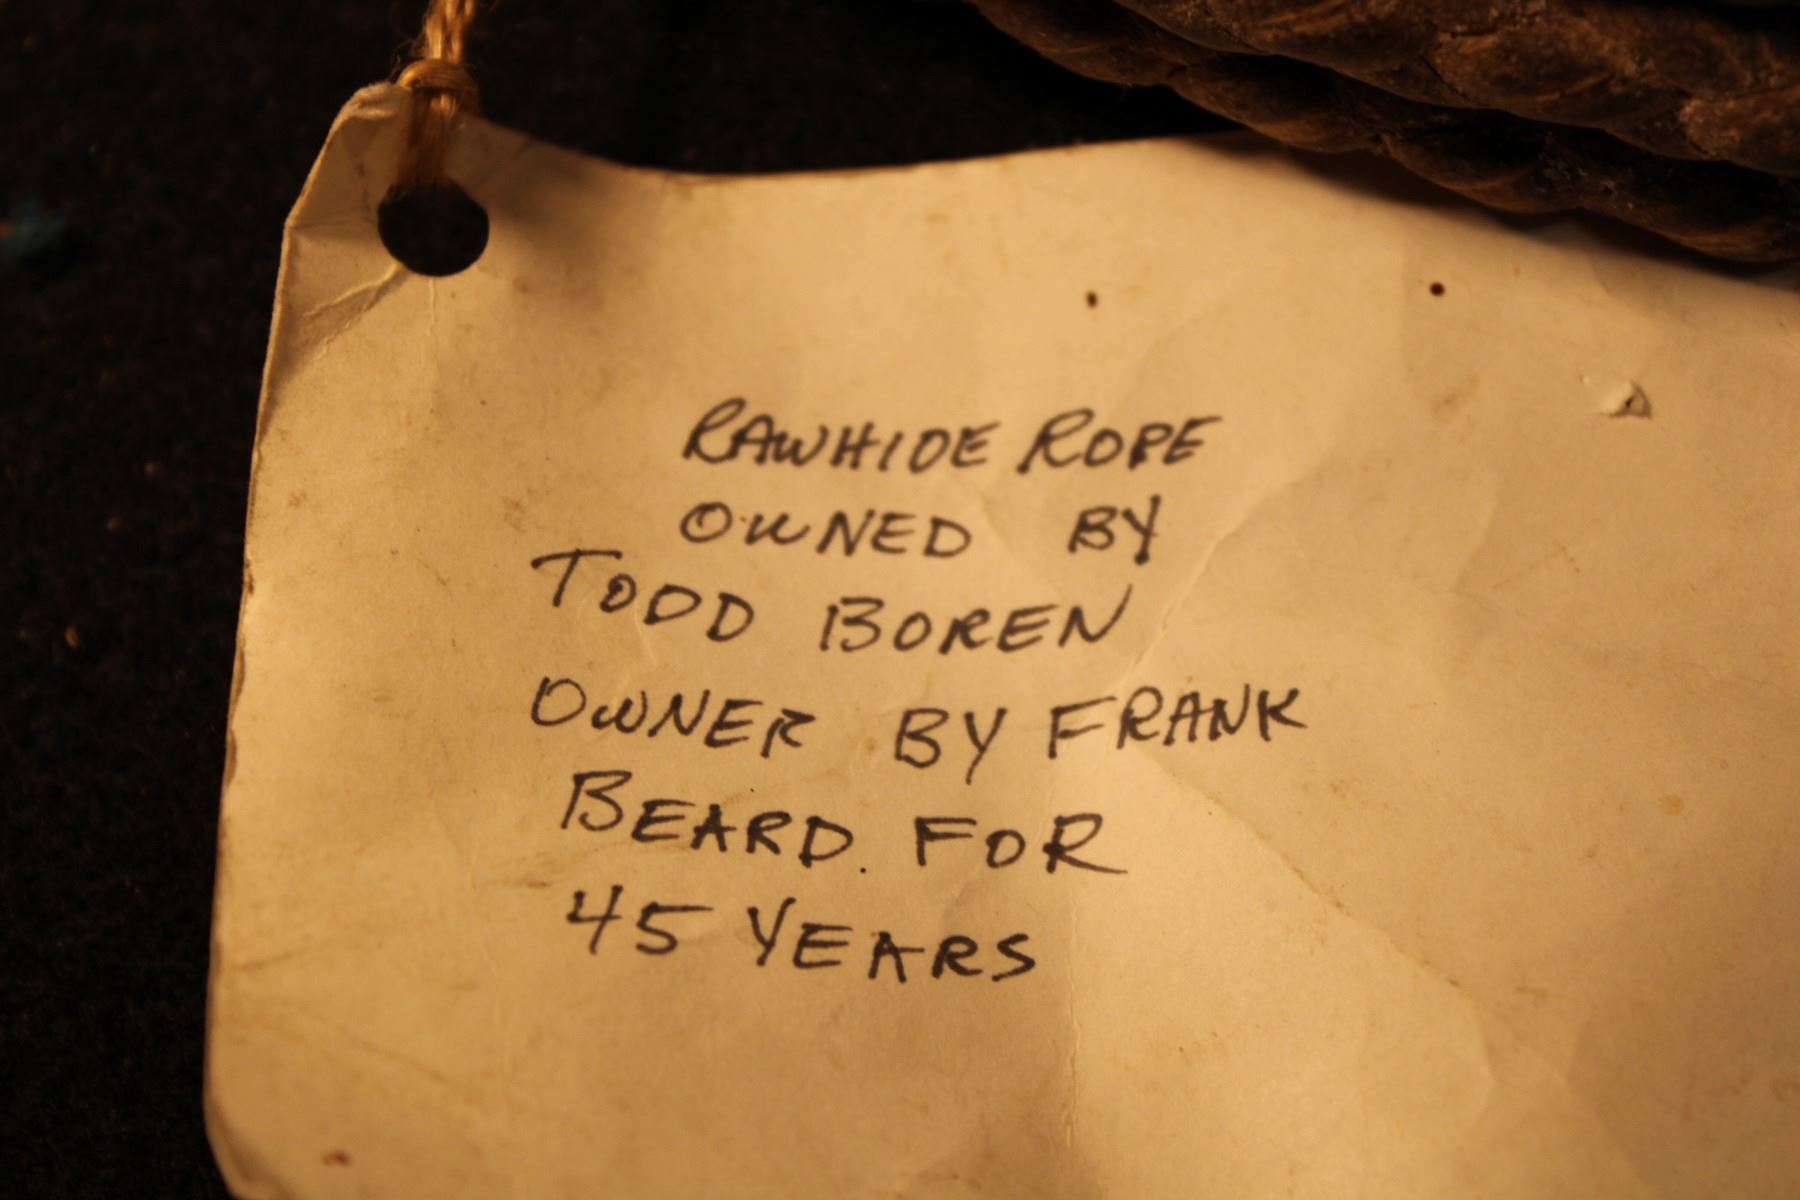 RAWHIDE ROPE
OWNED BY
TODD BOREN
OWNER BY FRANK
BEARD. FOR
45 YEARS